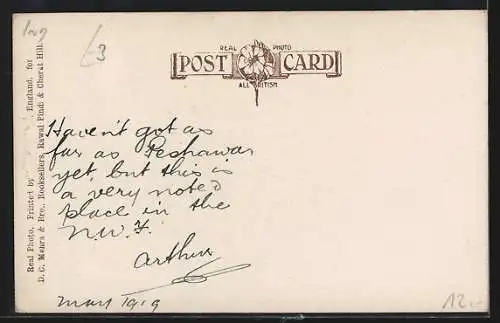 Ing
£3
REAL PHOTO
POST CARD
ALL BRITISH
Real Photo, Printed by England, for
D. C. Mehra & Bro., Booksellers, Rawal Pindi & Cherat Hill.
Haven't got as
far as Peshawar
yet, but this is
a very noted
place in the
N.W.F.
Arthur
May 1919
12.-